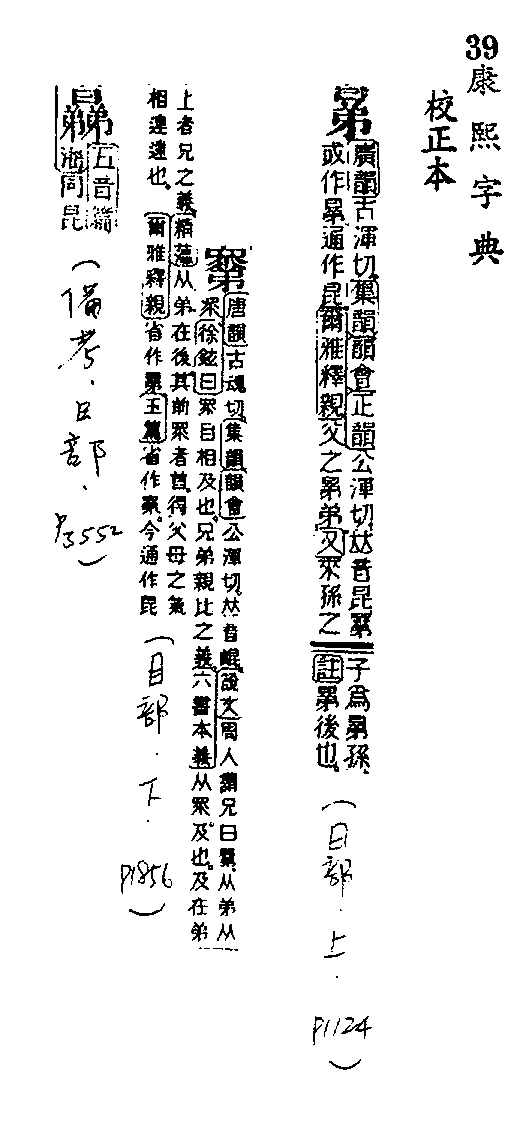 39
康熙字典
校正本
廣韻古渾切集韻韻會正韻公渾切𠀤音昆
或作晜通作昆爾雅釋親父之晜弟又來孫之
子爲晜孫
註晜後也
(日部.上.
P1124)
唐韻古魂切集韻韻會公渾切𠀤音崐說文周人謂兄曰𥊽从弟从
眔徐鉉曰眔目相及也兄弟親比之義六書本義从眔及也及在弟
上者兄之義精薀从弟在後其前眔者首得父母之氣
相逮遠也爾雅釋親省作晜玉篇省作𥊽今通作昆
(目部.下.
P1856)
五音篇
海同昆
(備考.日部.
P3552)